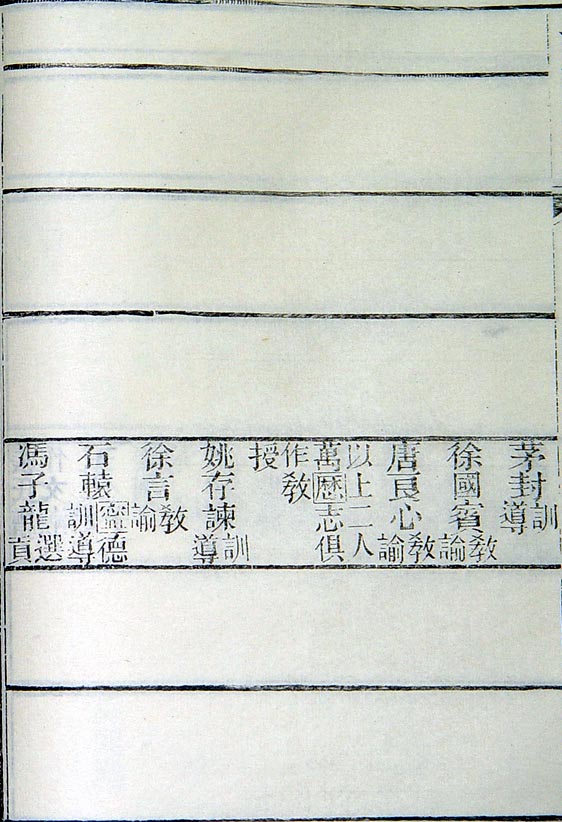 茅封訓導
徐國賓教諭
唐良心教諭
以上二人
萬歷志俱
作教
授
姚存諫訓導
徐言教諭
石轅寧德訓導
馮子龍選貢